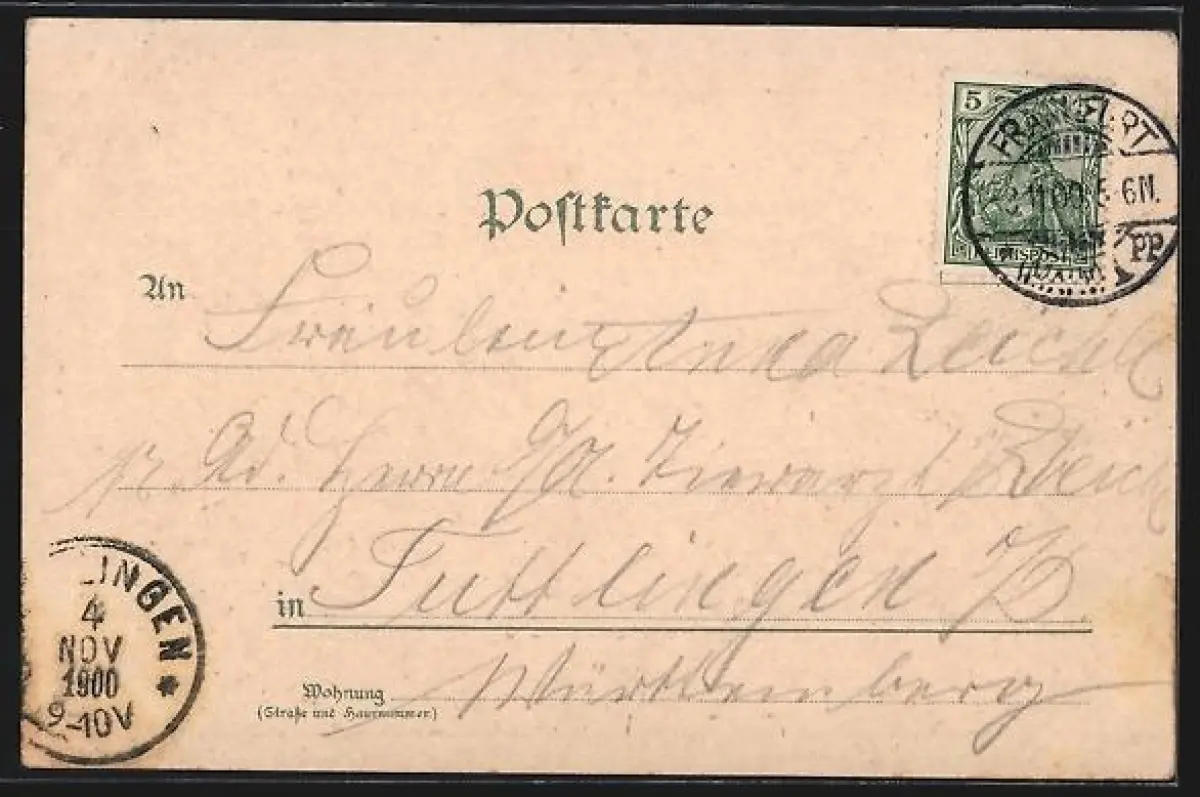 5
FRANKFURT
3.11.00.5-6N.
PP
(MAIN)
REICHSPOST
Postkarte
An Fräulein Anna
p. Ad. Herrn Tierarzt
in Tuttlingen
Württemberg
Wohnung
(Straße und Hausnummer)
LINGEN
4
NOV
1900
9-10V